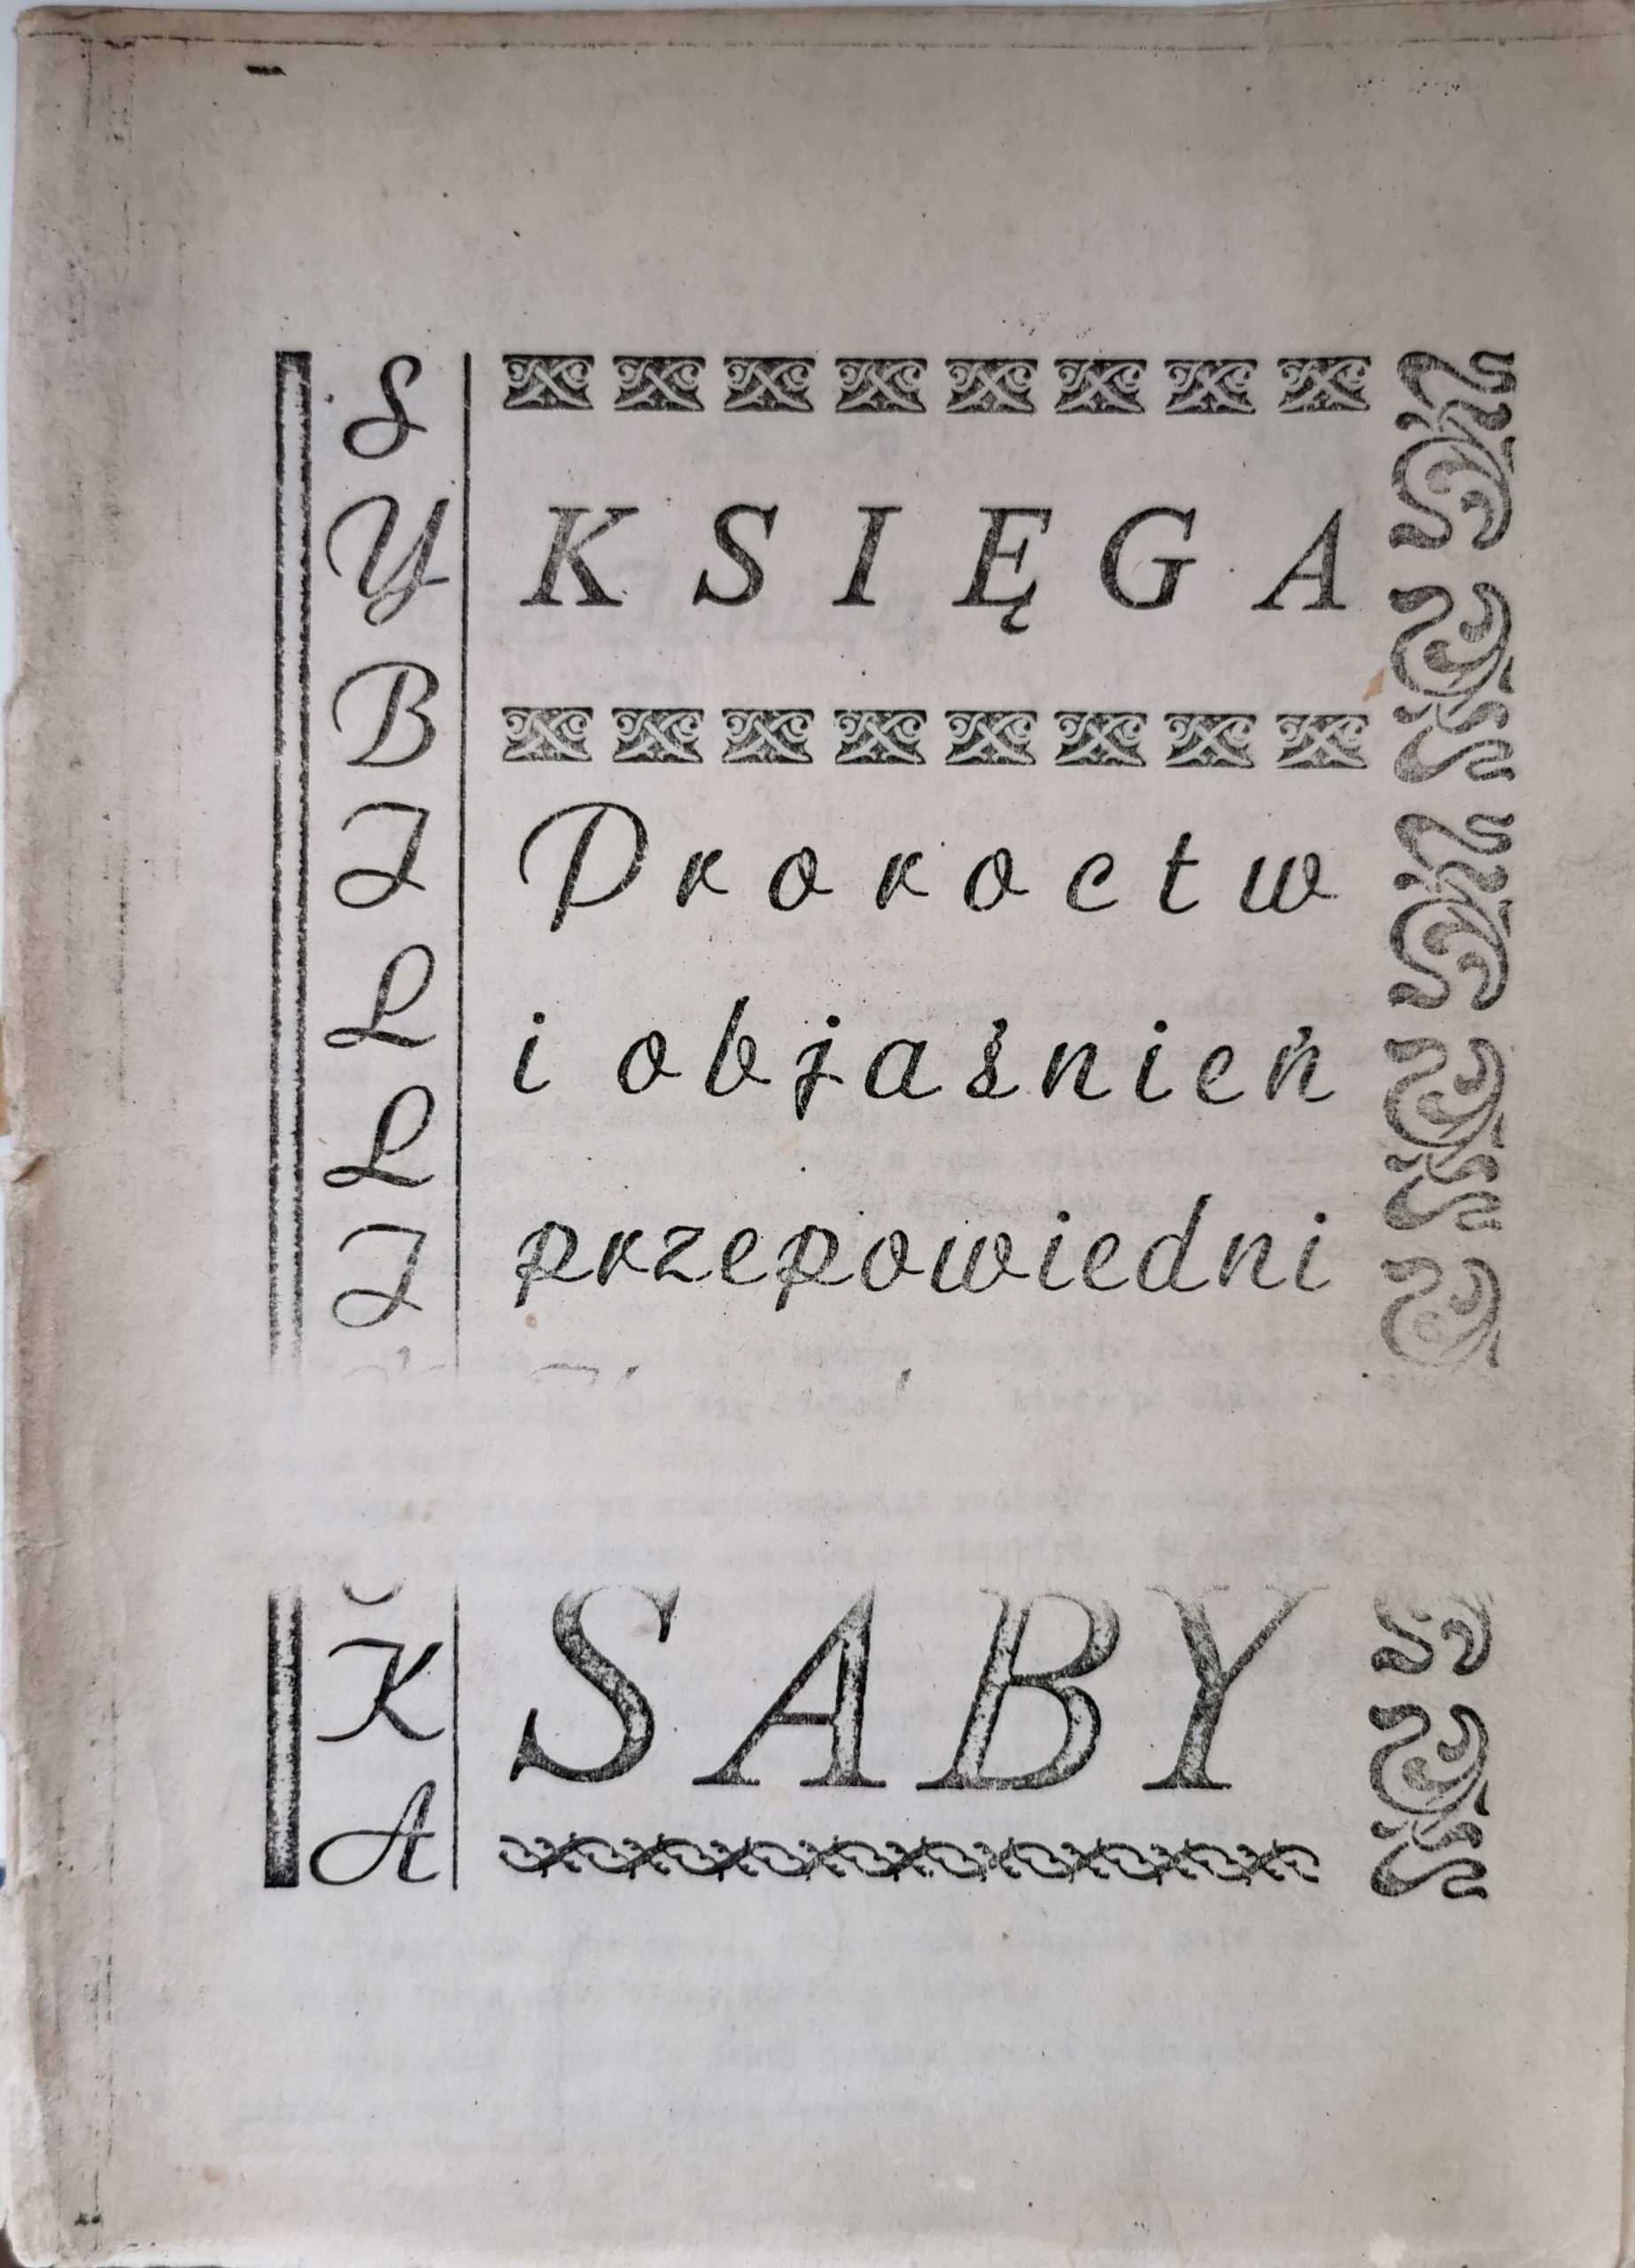 SYBILLI
KA
KSIĘGA
Proroctw
i objaśnień
przepowiedni
SABY